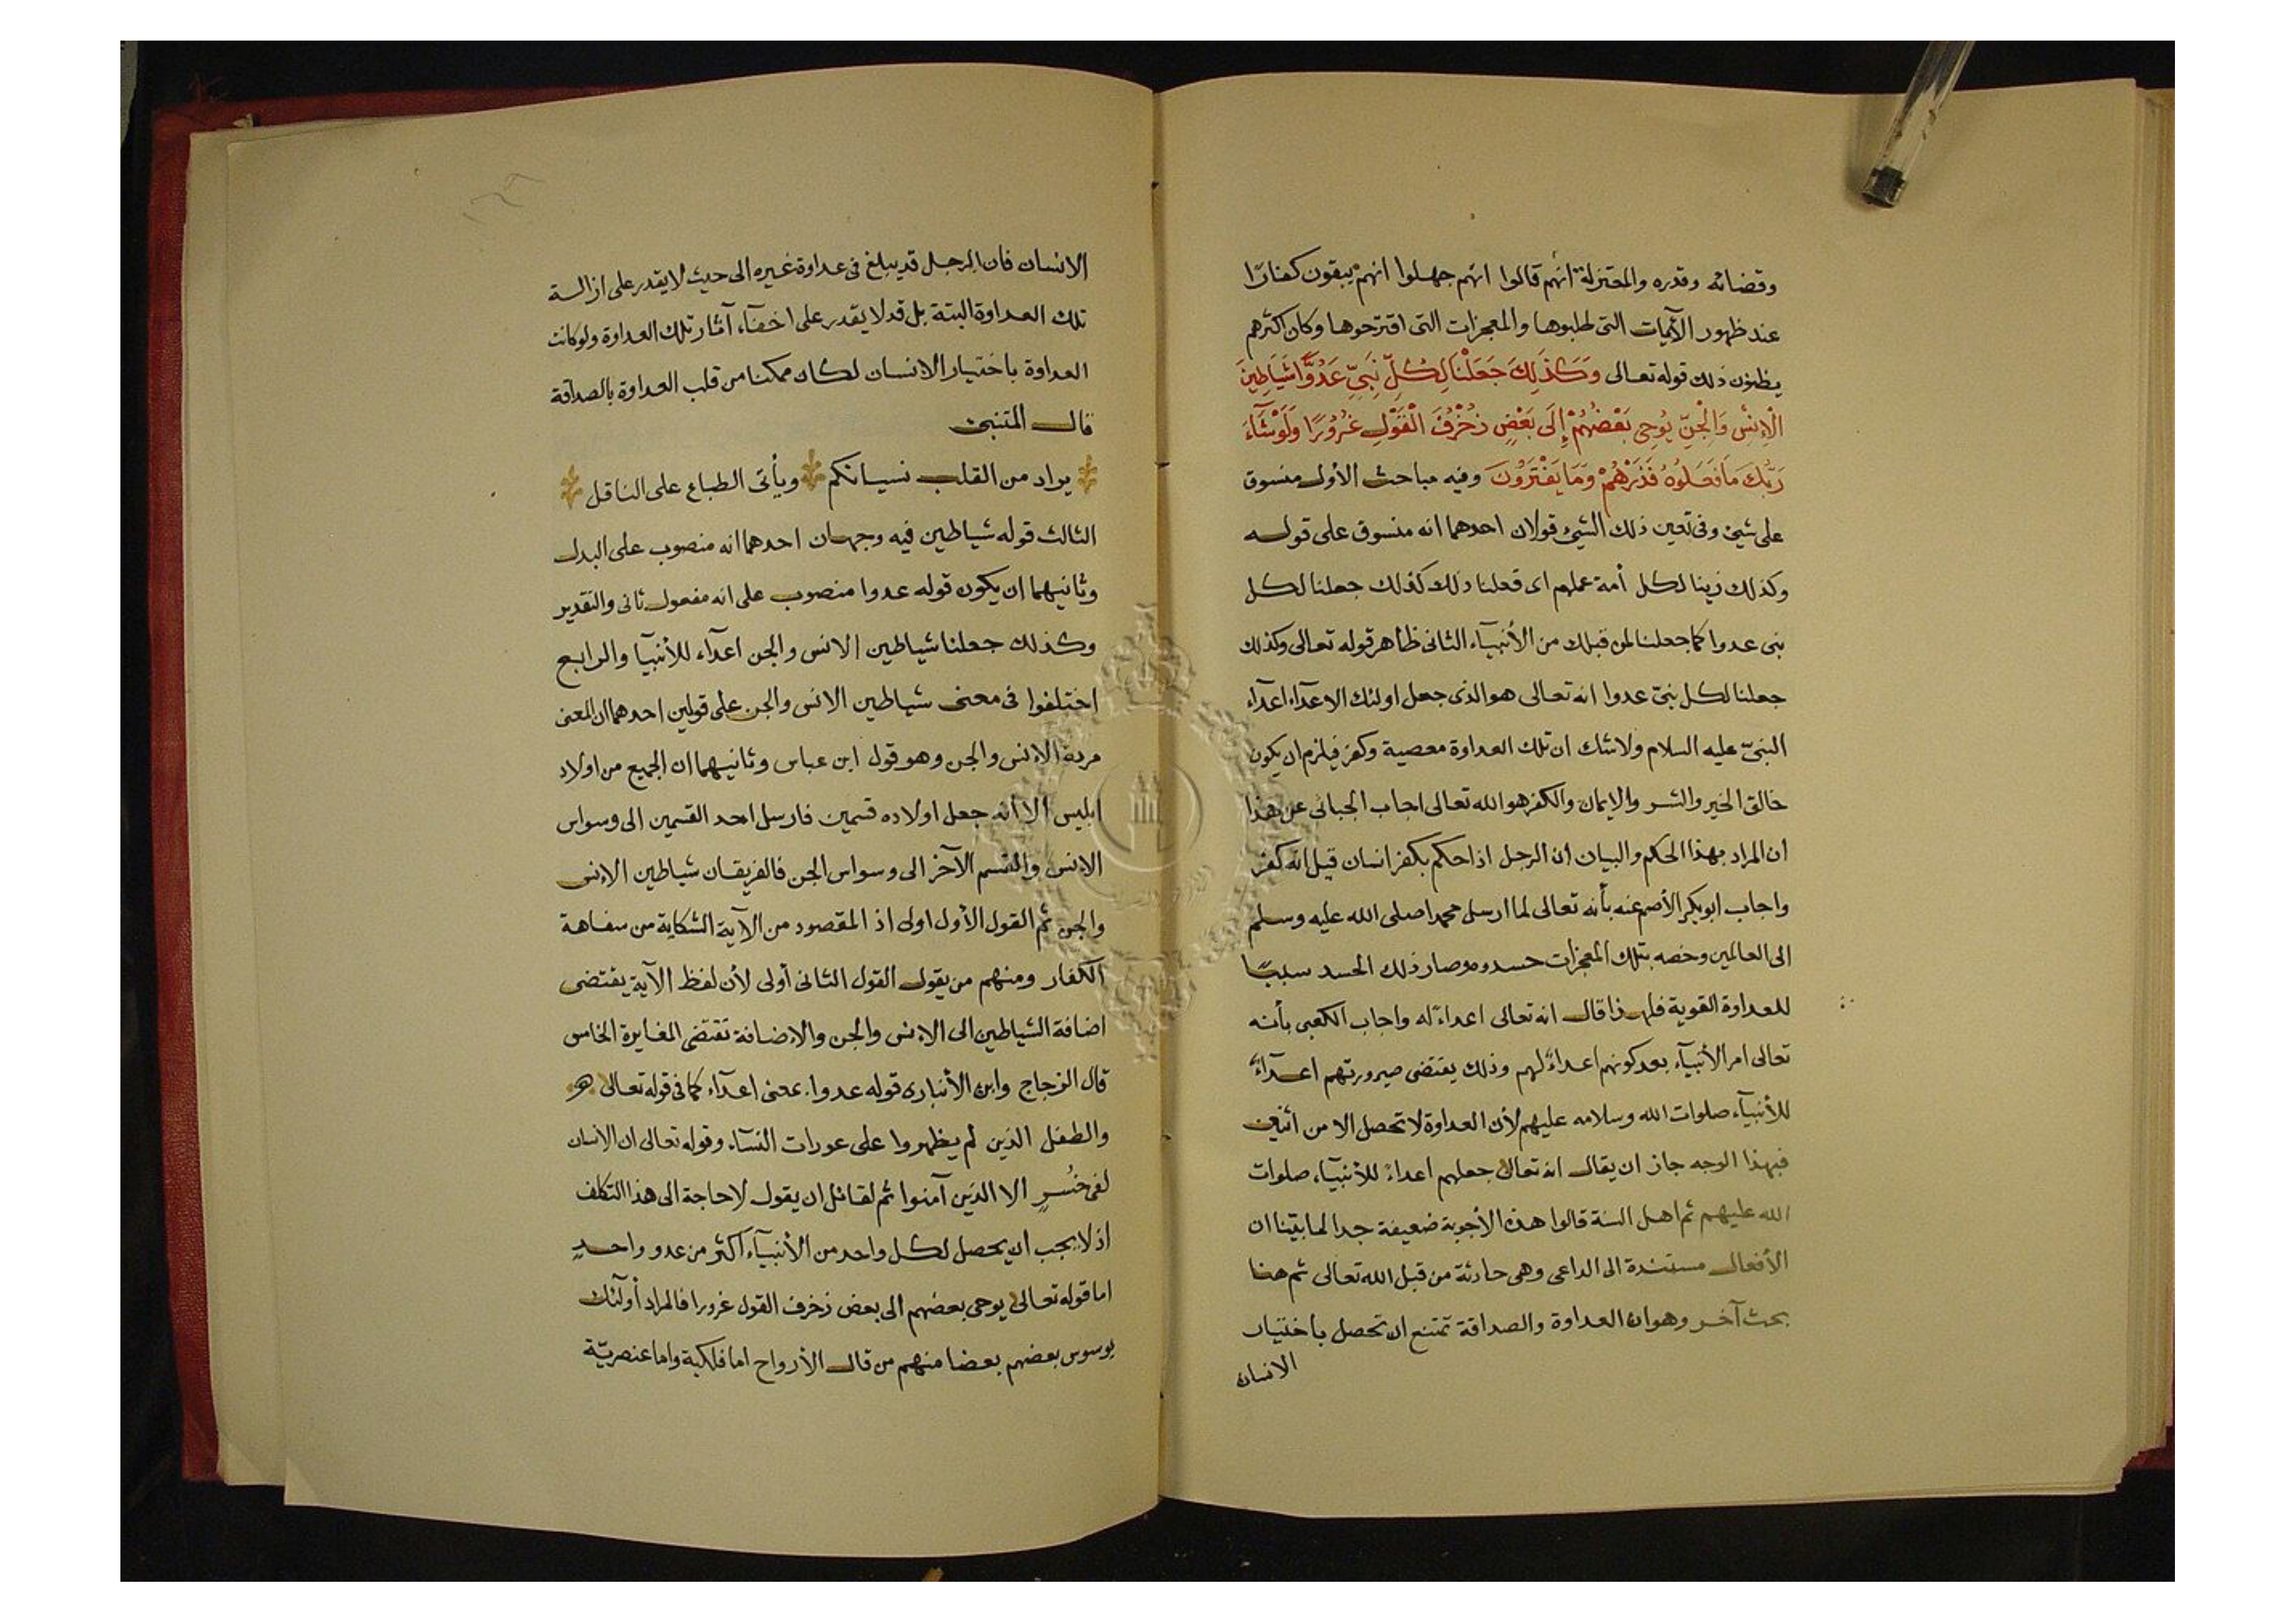 وقضائه وقدره والمعتزلة انهم قالوا انهم جهلوا انهم يبقون كفارًا
عند ظهور الآيات التى طلبوها والمعجزات التى اقترحوها وكان اكثرهم
يظنون ذلك قوله تعالى وَكَذَلِكَ جَعَلْنَا لِكُلِّ نَبِيٍّ عَدُوًّا شَيَاطِينَ
الْاِنْسِ وَالْجِنِّ يُوحِى بَعْضُهُمْ إِلَى بَعْضٍ زُخْرُفَ الْقَوْلِ غُرُورًا وَلَوْ شَآءَ
رَبُّكَ مَا فَعَلُوهُ فَذَرْهُمْ وَمَا يَفْتَرُونَ وفيه مباحث الأول منسوق
على شيئ وفى تعين ذلك الشيئ قولان احدهما انه منسوق على قوله
وكذلك زينا لكل أمة عملهم اى فعلنا ذلك كذلك جعلنا لكل
نبى عدوا كما جعلنا لمن قبلك من الأنبيآء الثانى ظاهر قوله تعالى وكذلك
جعلنا لكل نبىّ عدوا انه تعالى هو الذى جعل اولئك الاعدآء اعدآء
النبىّ عليه السلام ولا شك ان تلك العداوة معصية وكفر فيلزم ان يكون
خالق الخير والشر والإيمان والكفر هو الله تعالى اجاب الجبائى عن هذا
ان المراد بهذا الحكم والبيان ان الرجل اذا حكم بكفر انسان قيل انه كفر
واجاب ابو بكر الأصم عنه بأنه تعالى لما ارسل محمدا صلى الله عليه وسلم
الى العالمين وخصه بتلك المعجزات حسدوه وصار ذلك الحسد سببًا
للعداوة القوية فلهذا قال انه تعالى اعداءً له واجاب الكعبى بأنه
تعالى امر الأنبيآء بعد كونهم اعداءً لهم وذلك يقتضى صيرورتهم اعدآءً
للأنبيآء صلوات الله وسلامه عليهم لأن العداوة لا تحصل الا من اثنين
فبهذا الوجه جاز ان يقال انه تعالى جعلهم اعداءً للأنبيآء صلوات
الله عليهم ثم اهل السنة قالوا هذه الأجوبة ضعيفة جدا لما بيّنا ان
الأفعال مستندة الى الداعى وهى حادثة من قبل الله تعالى ثم هنا
بحث آخر وهو ان العداوة والصداقة تمتنع ان تحصل باختيار
الانسان
الانسان فان الرجل قد يبلغ فى عداوة غيره الى حيث لا يقدر على ازالة
تلك العداوة البتة بل قد لا يقدر على اخفآء آثار تلك العداوة ولو كانت
العداوة باختيار الانسان لكان ممكنا من قلب العداوة بالصداقة
قال المتنبئ
يراد من القلب نسيانكم ويأتى الطباع على الناقل
الثالث قوله شياطين فيه وجهان احدهما انه منصوب على البدل
وثانيهما ان يكون قوله عدوا منصوب على انه مفعول ثانى والتقدير
وكذلك جعلنا شياطين الانس والجن اعدآء للأنبيآ والرابع
اختلفوا فى معنى شياطين الانس والجن على قولين احدهما ان المعنى
مردة الانس والجن وهو قول ابن عباس وثانيهما ان الجميع من اولاد
ابليس الا انه جعل اولاده قسمين فارسل احد القسمين الى وسواس
الإنس والقسم الآخر الى وسواس الجن فالفريقان شياطين الإنس
والجن ثم القول الأول اولى اذ المقصود من الآية الشكاية من سفاهة
الكفار ومنهم من يقول القول الثانى أولى لأن لفظ الآية يقتضى
اضافة الشياطين الى الإنس والجن والإضافة تقتضى المغايرة الخامس
قال الزجاج وابن الأنبارى قوله عدوا بمعنى اعدآء كما فى قوله تعالى
والطفل الذين لم يظهروا على عورات النسآء وقوله تعالى ان الانسان
لفى خُسرٍ الا الذين آمنوا ثم لقائل ان يقول لا حاجة الى هذا التكلف
اذ لا يجب ان يحصل لكل واحد من الأنبيآء اكثر من عدو واحدٍ
اما قوله تعالى يوحى بعضهم الى بعض زخرف القول غرورا فالمراد أولئك
يوسوس بعضهم بعضا منهم من قال الأرواح اما فلكية واما عنصريّة